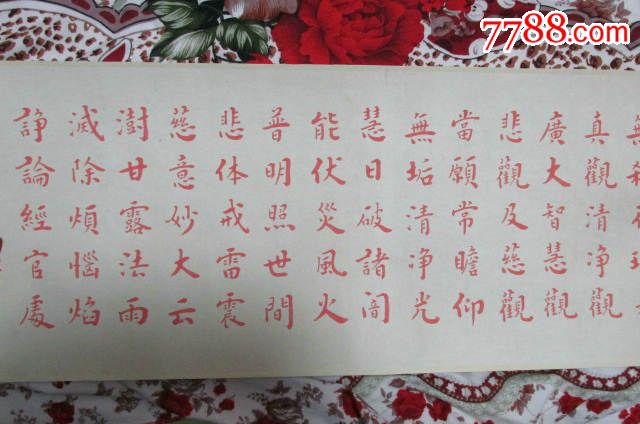 真觀清净觀
廣大智慧觀
悲觀及慈觀
當願常瞻仰
無垢清净光
慧日破諸闇
能伏災風火
普明照世間
悲体戒雷震
慈意妙大云
澍甘露法雨
滅除煩惱焰
諍論經官處
7788.com